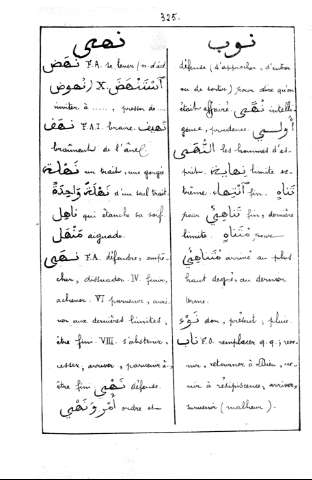 325.
نهى
نَهَضَ F.A. se lever / n. d'act.
نُهوض) X. اَسْتَنْهَضَ
inviter à ...., presser de ....
نَهَقَ F.A.I. braire. نَهِيف
braiment de l'âne
نَهْلَة un trait, une gorgée
نَهْلَةً وَاحِدَةً d'un seul trait.
نَاهِل qui étanche sa soif.
مَنْهَل aiguade.
نَهَى F.A. défendre, empê-
cher, dissuader. IV. finir,
achever. VI parvenir, arri-
ver aux dernières limites,
être fini. VIII. s'abstenir,
cesser, arriver, parvenir à,
être fini نَهْي défense.
أَمْر وَنَهْي ordre et
نوب
défense (d'approcher, d'entrer
ou de sortir) pour dire qu'on
était affairé. نُهًى intelli-
gence, prudence. أُولِي
النُّهَى les hommes d'es-
prit. نِهَايَة limite ex-
trême. اَنْتِهَاء fin. تَنَاهٍ
pour تَنَاهِي fin, dernière
limite. مُتَنَاهٍ pour
مُتَنَاهِي arrivé au plus
haut degré, au dernier
terme.
نَوْء don, présent, pluie.
نَابَ F.O. remplacer q.q.; reve-
nir, retourner à Dieu, ve-
nir à résipiscence, arriver,
survenir (malheur).